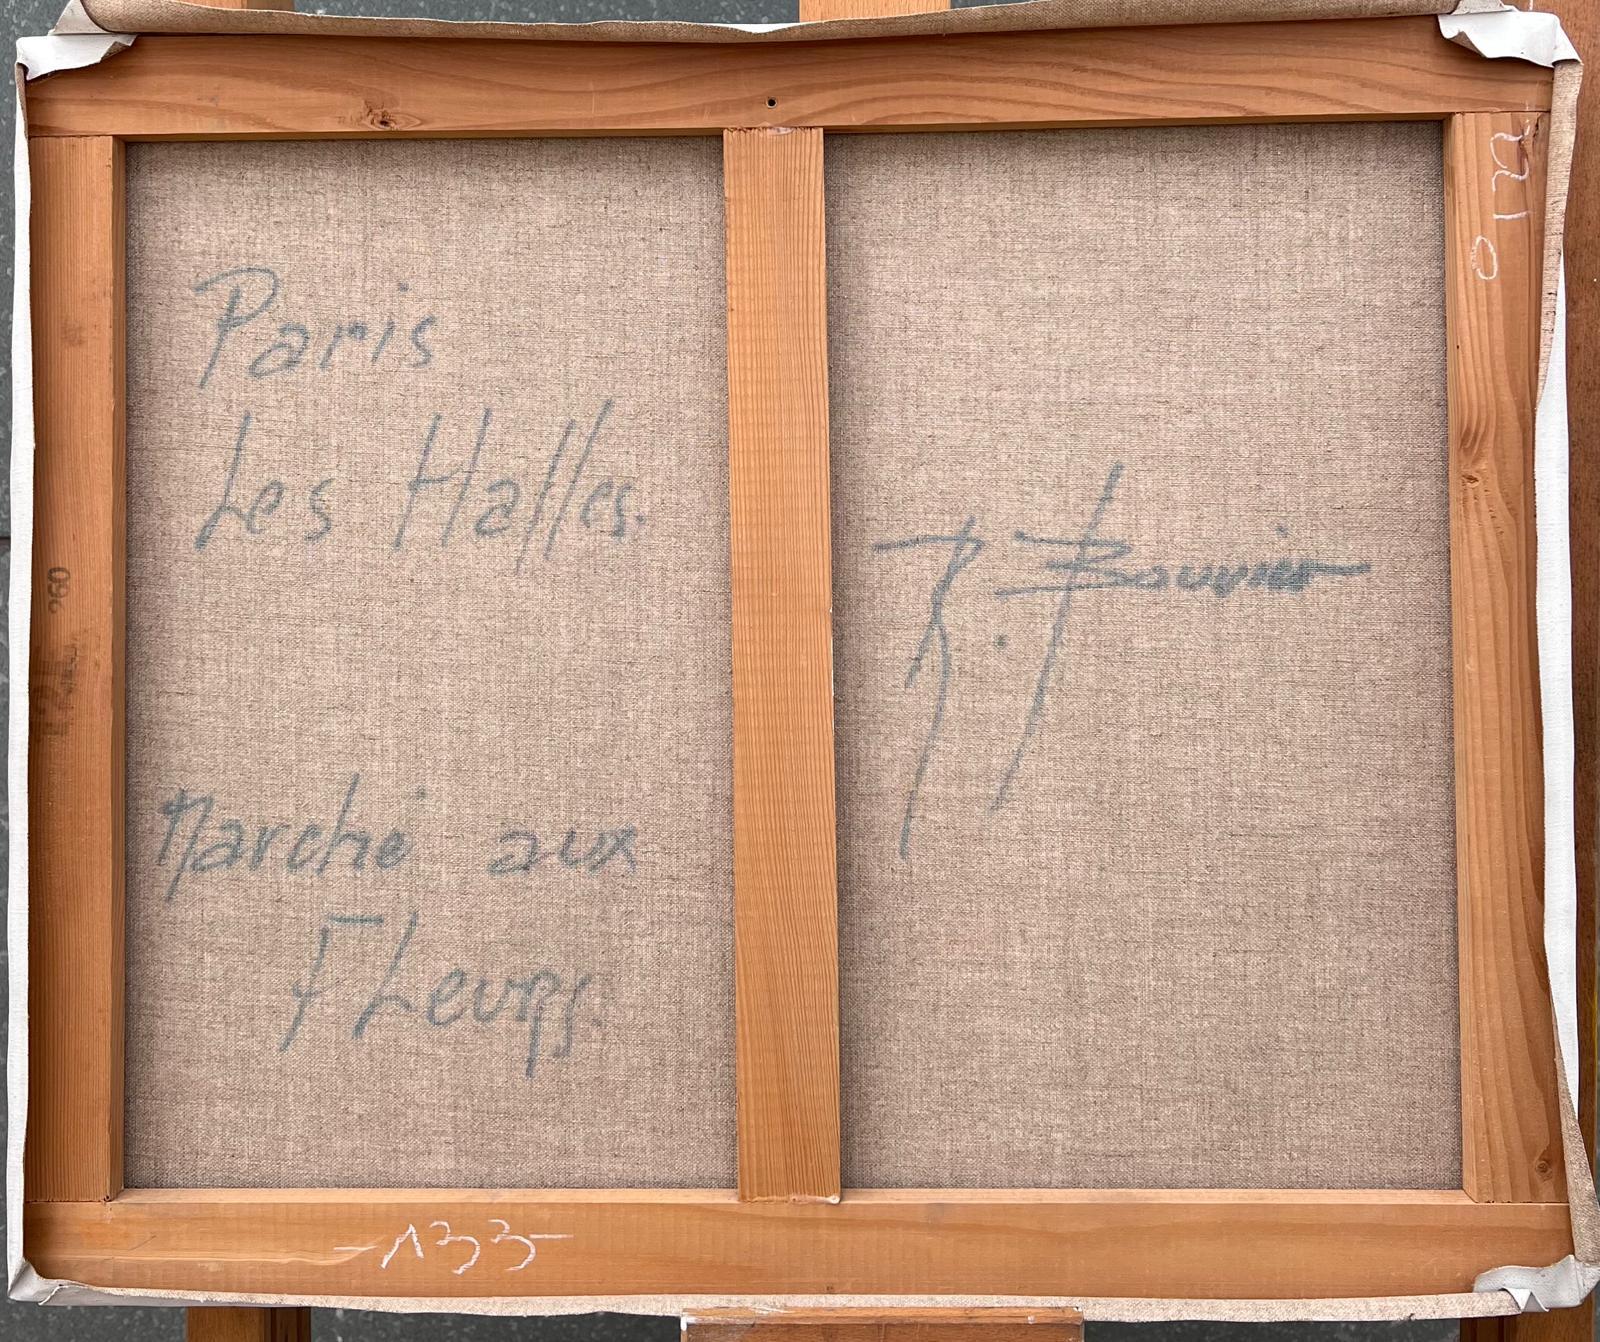 Paris
Les Halles.
Marché aux
FLeurs.
R. Bouvier
-133-
260